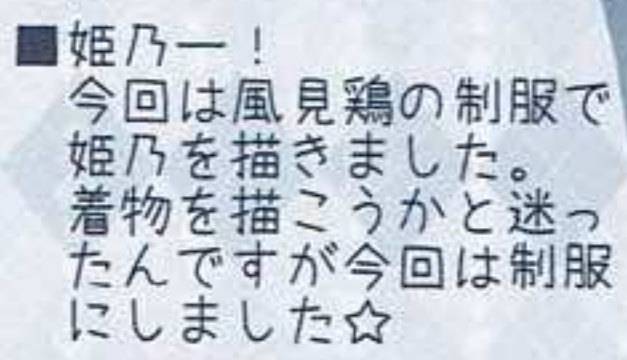 ■姫乃ー!
今回は風見鶏の制服で
姫乃を描きました。
着物を描こうかと迷っ
たんですが今回は制服
にしました☆